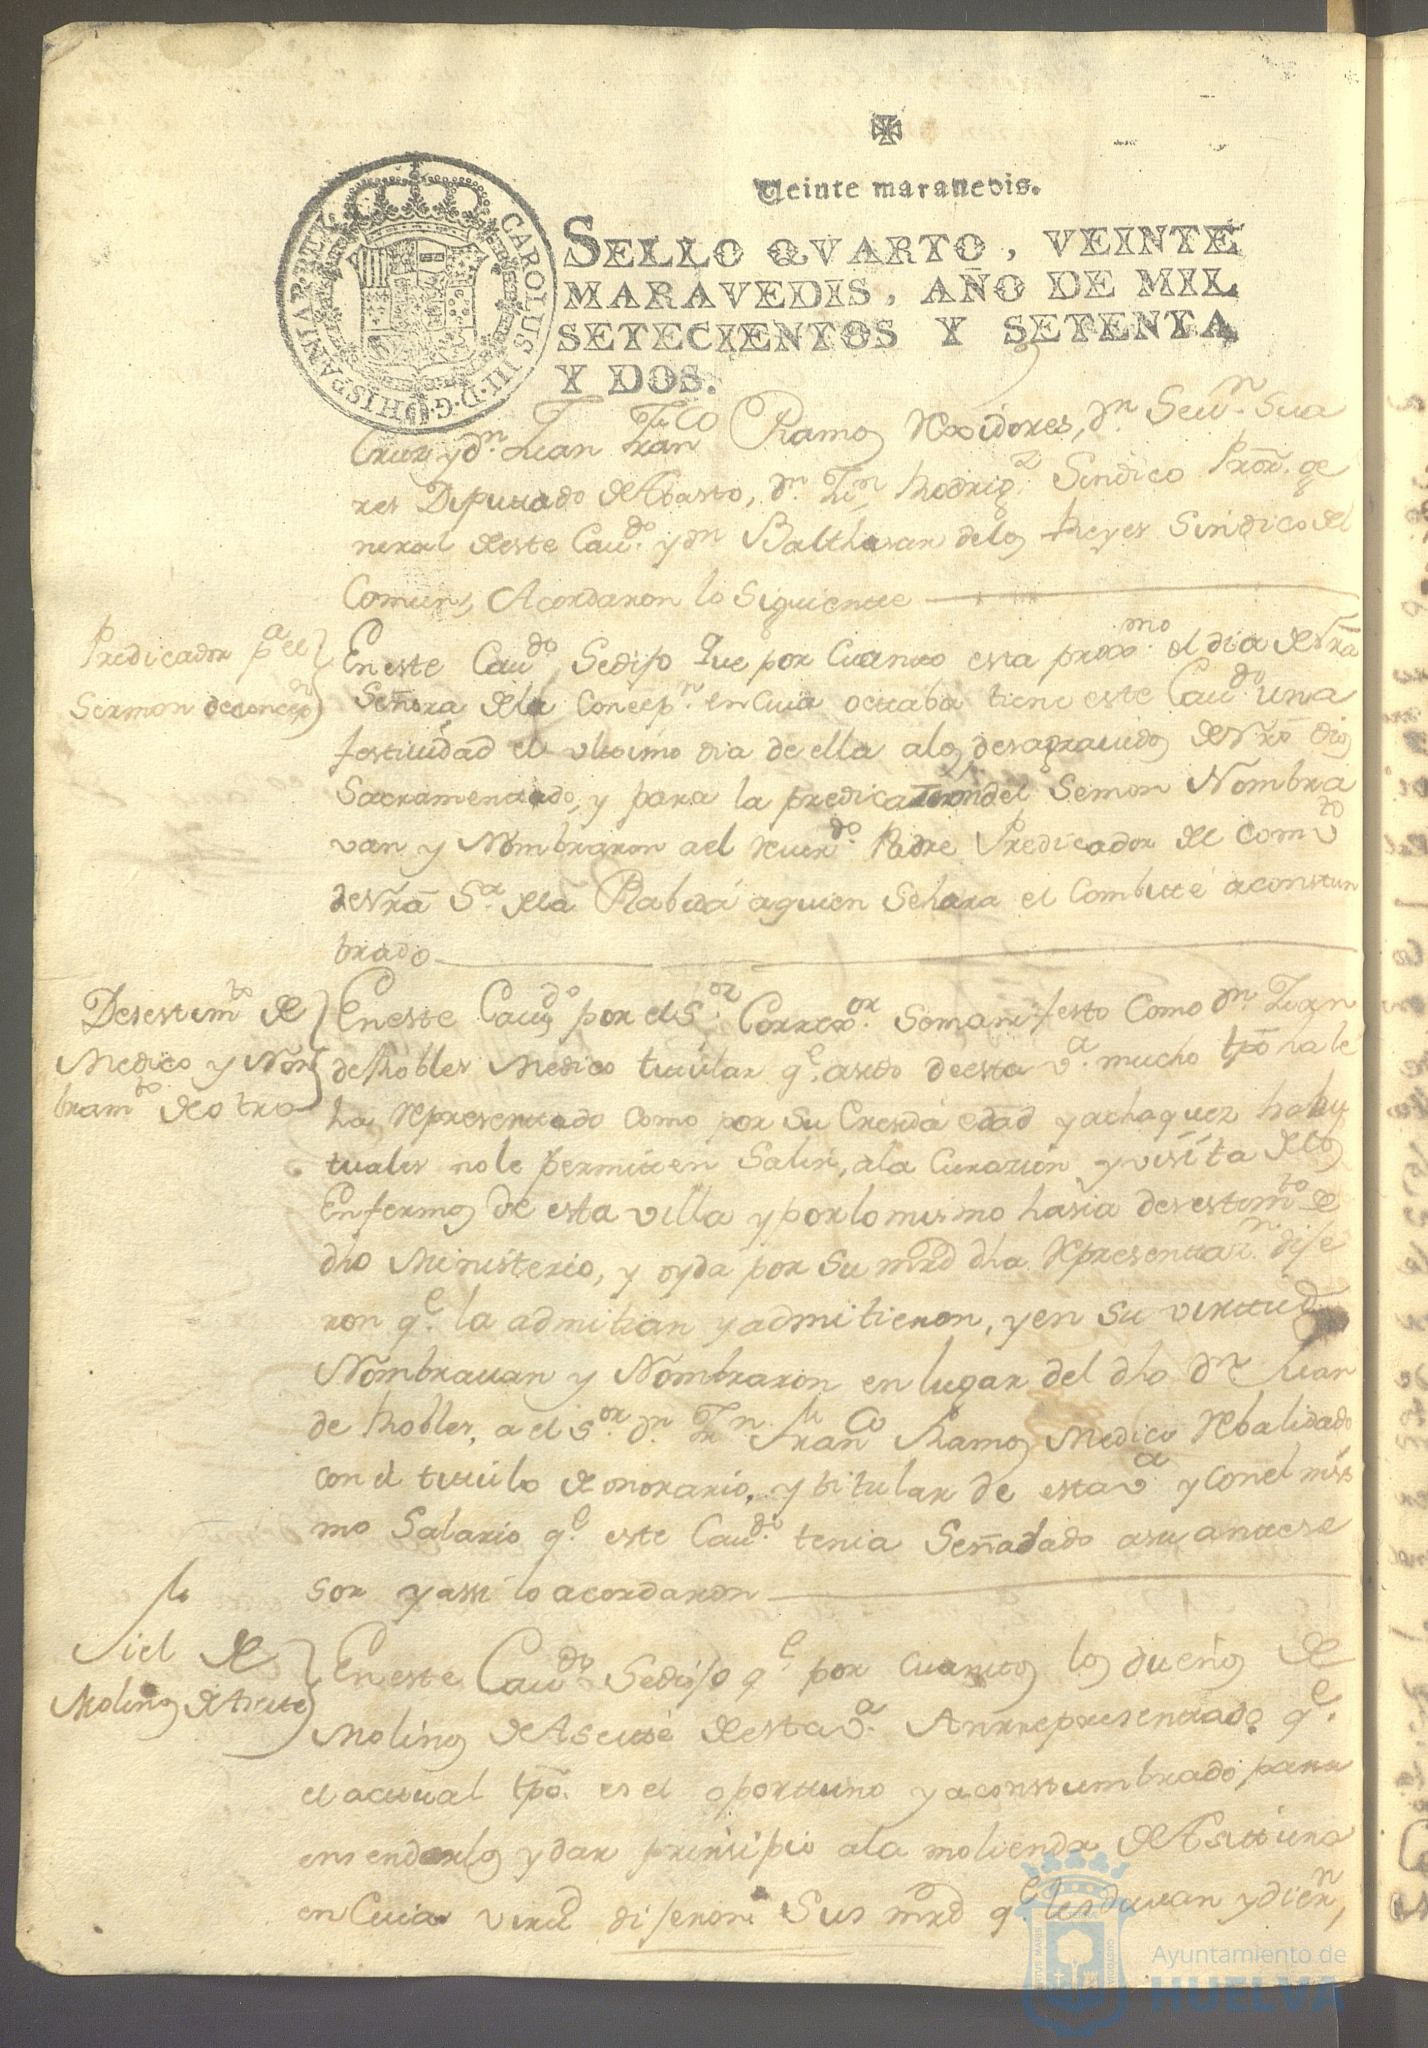 Veinte maravedis.
SELLO QVARTO, VEINTE
MARAVEDIS, AÑO DE MIL
SETECIENTOS Y SETENTA
Y DOS.
CAROLUS III. D. G. HISPANIAR. REX
Cruz y dn. Juan Franco Ramos Rexidores, dn.
res Diputado de Abasto, dn. Rodrigz. Sindico Pror. ge
neral de este Cavdo. y dn Balthasar delos Reyes Sindico del
Comun, Acordaron lo Siguiente
Predicador pa el
Sermon de concepn
En este Cavdo. Sedijo Que por Cuanto esta proxmo. el dia de Nrã
Señora dela Concepn. en Cuia octaba tiene este Cavdo. una
festiuidad el ultimo dia de ella alos desagrauios de Nrõ Dios
Sacramentado, y para la predicazion del Sermon Nombra
van y Nombraron a el Reverdo. Padre Predicador de Comvto
de Nrã Sa. dela Rabida a quien Sehara el Combite acostun
brado
Desestimto de
Medico y Non
bramto de otro
En este Cavdo por el Sor. Correxor. Semanifesto Como dn Juan
de Robles Medico titular qe. asido de esta va. mucho tpõ hale
ha Representado Como por su Cresida edad y achaquez habi
tuales nole permiten Salir, ala Curazion y visita delos
Enfermos de esta villa y por lo mismo hasia desestimto de
dho Ministerio, y oyda por su mrd dha Representazn. dije
ron qe. la admitian y admitieron, y en su virtud
Nombravan y Nombraron en lugar del dho dn Juan
de Robles, a el Sor. dn. Jn. Franco Ramos Medico Rebalidado
con el titulo de onorario, y titular de esta va y con el mis
mo Salario qe. este Cavdo. tenia Señalado a su antese
sor y assi lo acordaron
Fiel de
Molinos de Aseite
En este Cavdo Sedijo qe por cuanto los dueños de
Molinos de Aseite de esta va. An representado qe.
el actual tpõ. es el oportuno y acostumbrado para
ensenderlos y dar prinsipio ala molienda de Aseituna
en Cuia virtd dijeron Sus mrd qe les davan y diern,
Ayuntamiento de
HUELVA